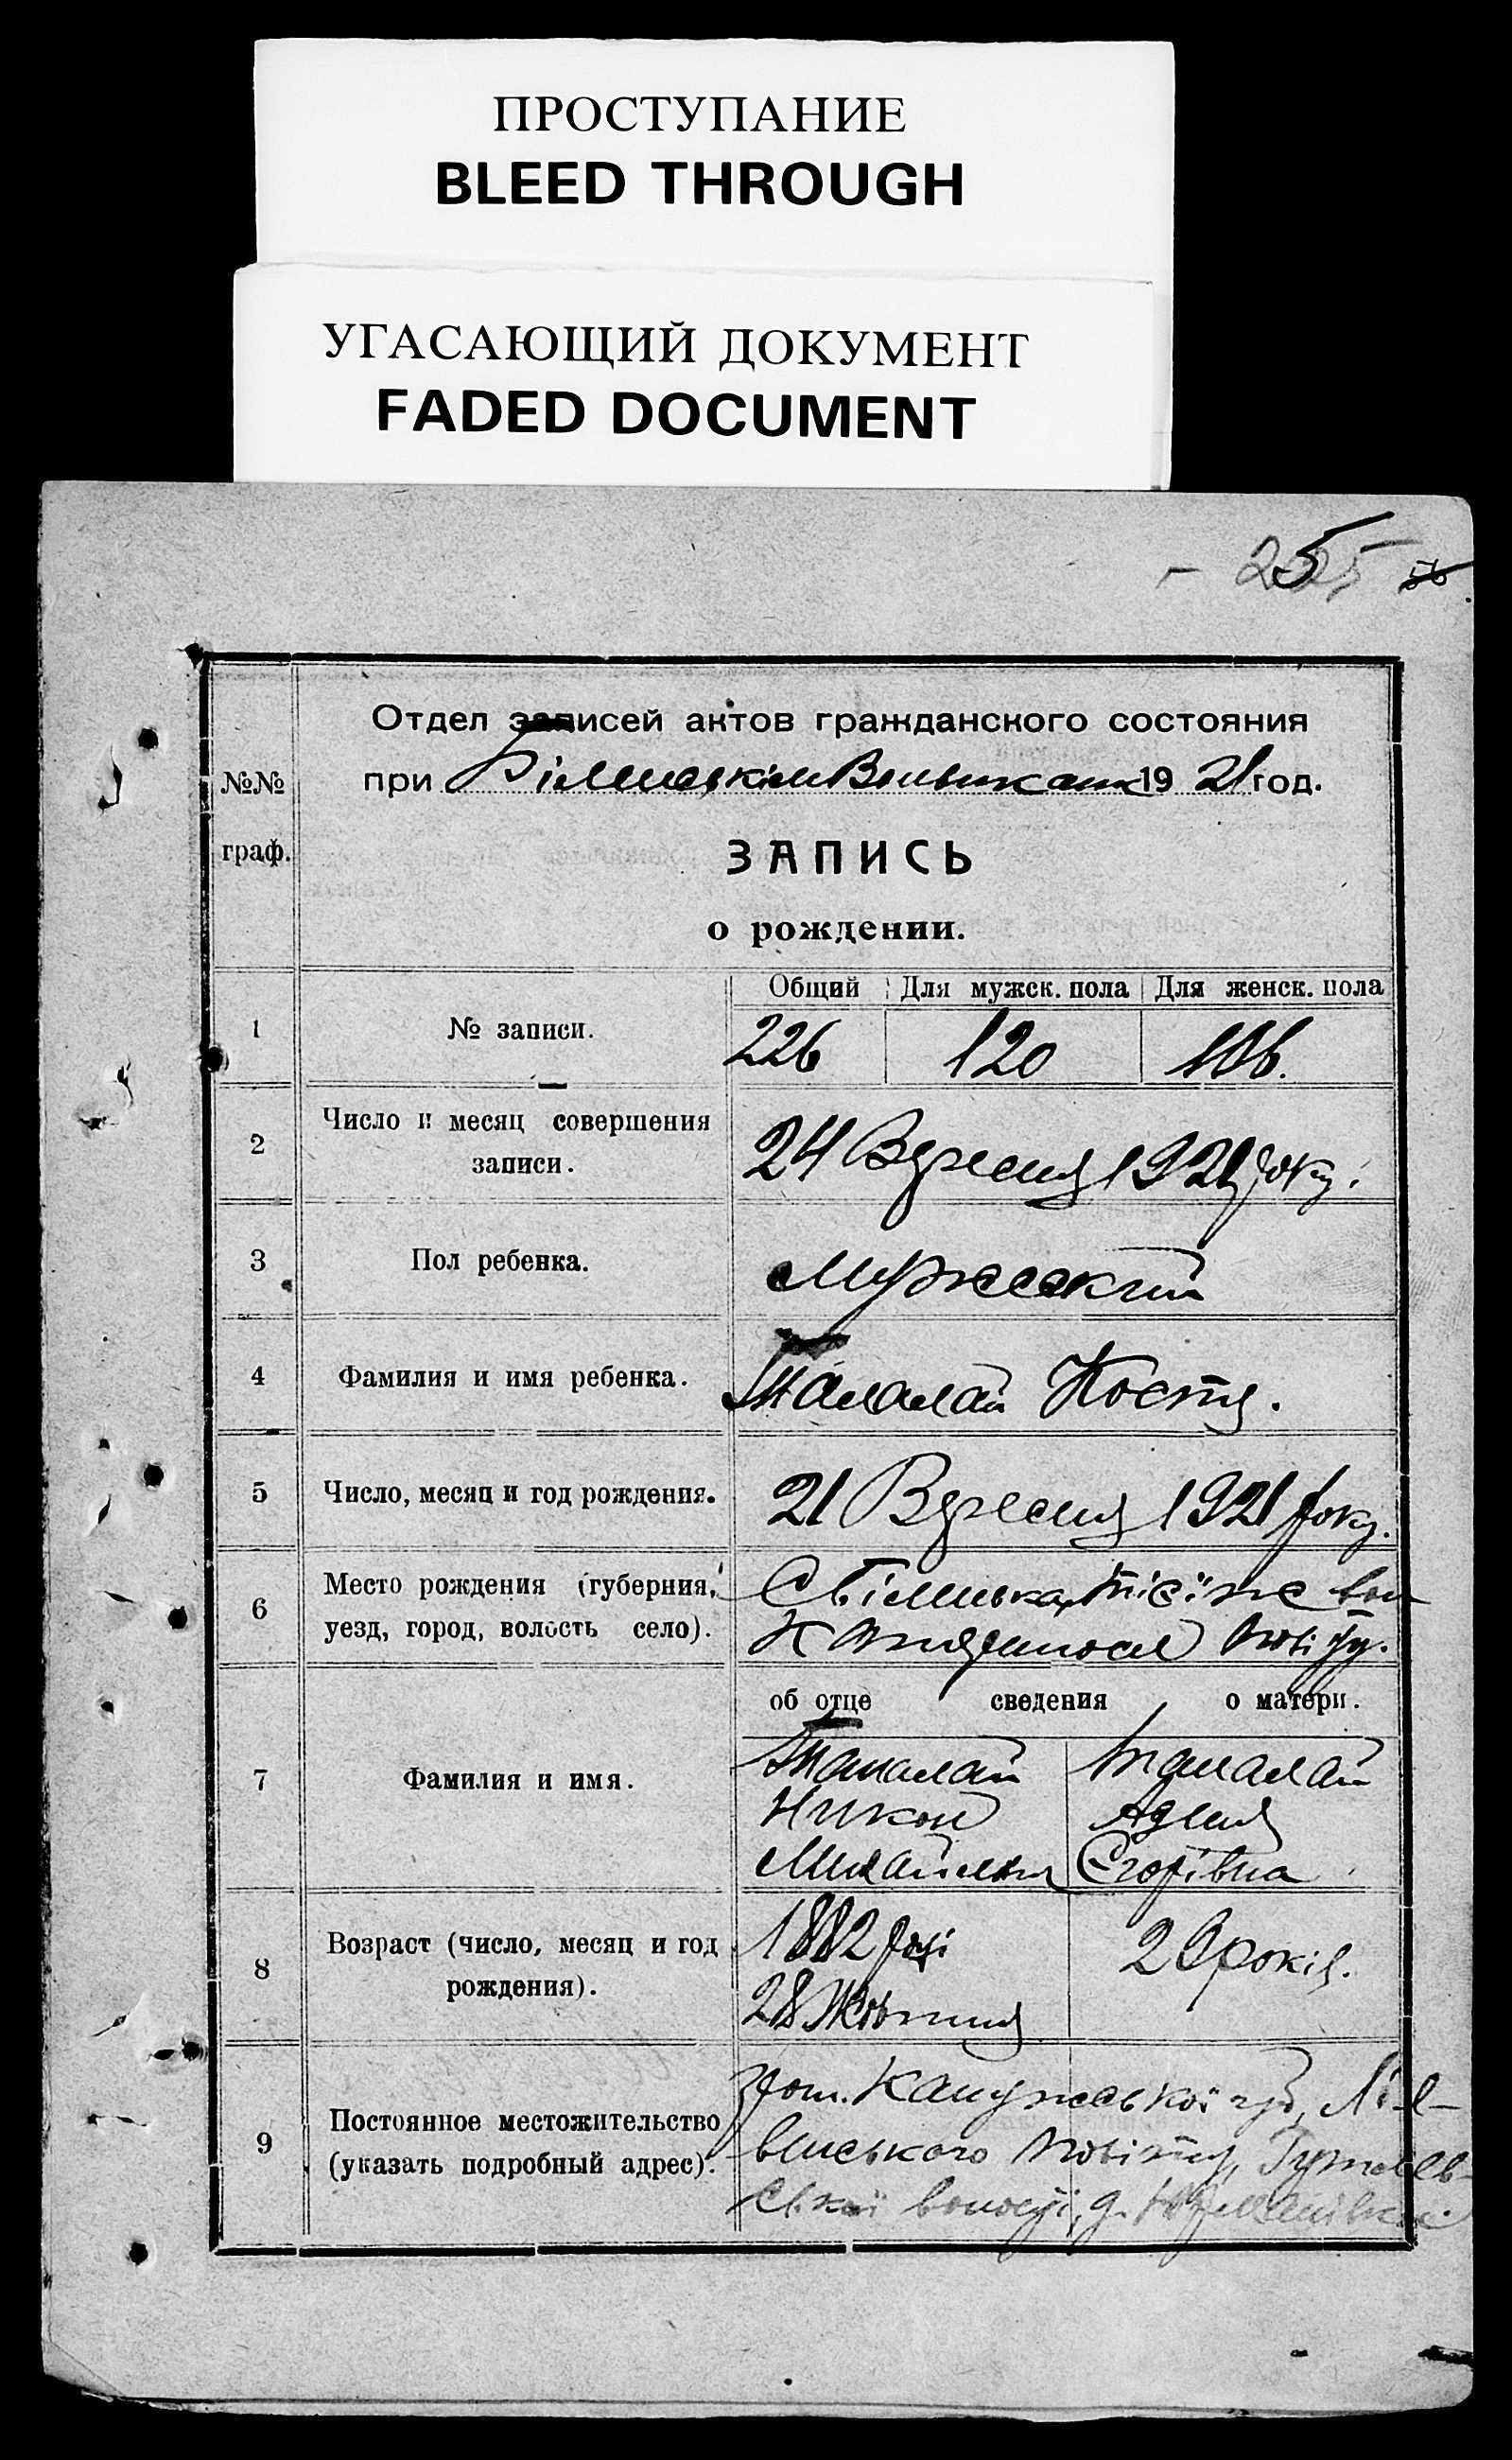 ПРОСТУПАНИЕ
BLEED THROUGH
УГАСАЮЩИЙ ДОКУМЕНТ
FADED DOCUMENT
- 255
№№
граф.
Отдел записей актов гражданского состояния
при 1921 год.
ЗАПИСЬ
о рождении.
Общий Для мужск. пола Для женск. пола
1 № записи. 226 120 106.
2 Число и месяц совершения
записи. 24 Вересня 1921 року.
3 Пол ребенка. Мужеский
4 Фамилия и имя ребенка. Талалай Костя.
5 Число, месяц и год рождения. 21 Вересня 1921 року.
6 Место рождения (губерния,
уезд, город, волость село).
тієї же вол
повіту.
об отце сведения о матери.
7 Фамилия и имя.
Талалай Талалай
Никон
Михайлов Егорівна
8 Возраст (число, месяц и год
рождения).
1882 році 29 років.
28 Жовтня
9 Постоянное местожительство
(указать подробный адрес).
Калужської губ,
повіту,
волості, д.